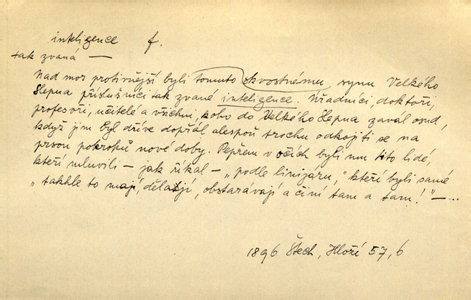 inteligence f.
tak zvaná —
Nad moř protivnější byli tomuto skvostnému synu Velkého
Slepna příslušníci tak zvané inteligence. Úředníci, doktoři,
profesoři, učitelé a všichni, koho do Velkého Slepna zavál osud,
když jim byl dříve dopřál alespoň trochu odkojiti se na
prvou pokroků nové doby. Pepřem v očích byli mu tito lidé,
kteří mluvili — jak říkal — „podle linigáru,“ kteří byli samé
„takhle to mají, dělají, obstarávají a činí tam a tam!“ — ...
1896 Štech, Hloží 57, 6